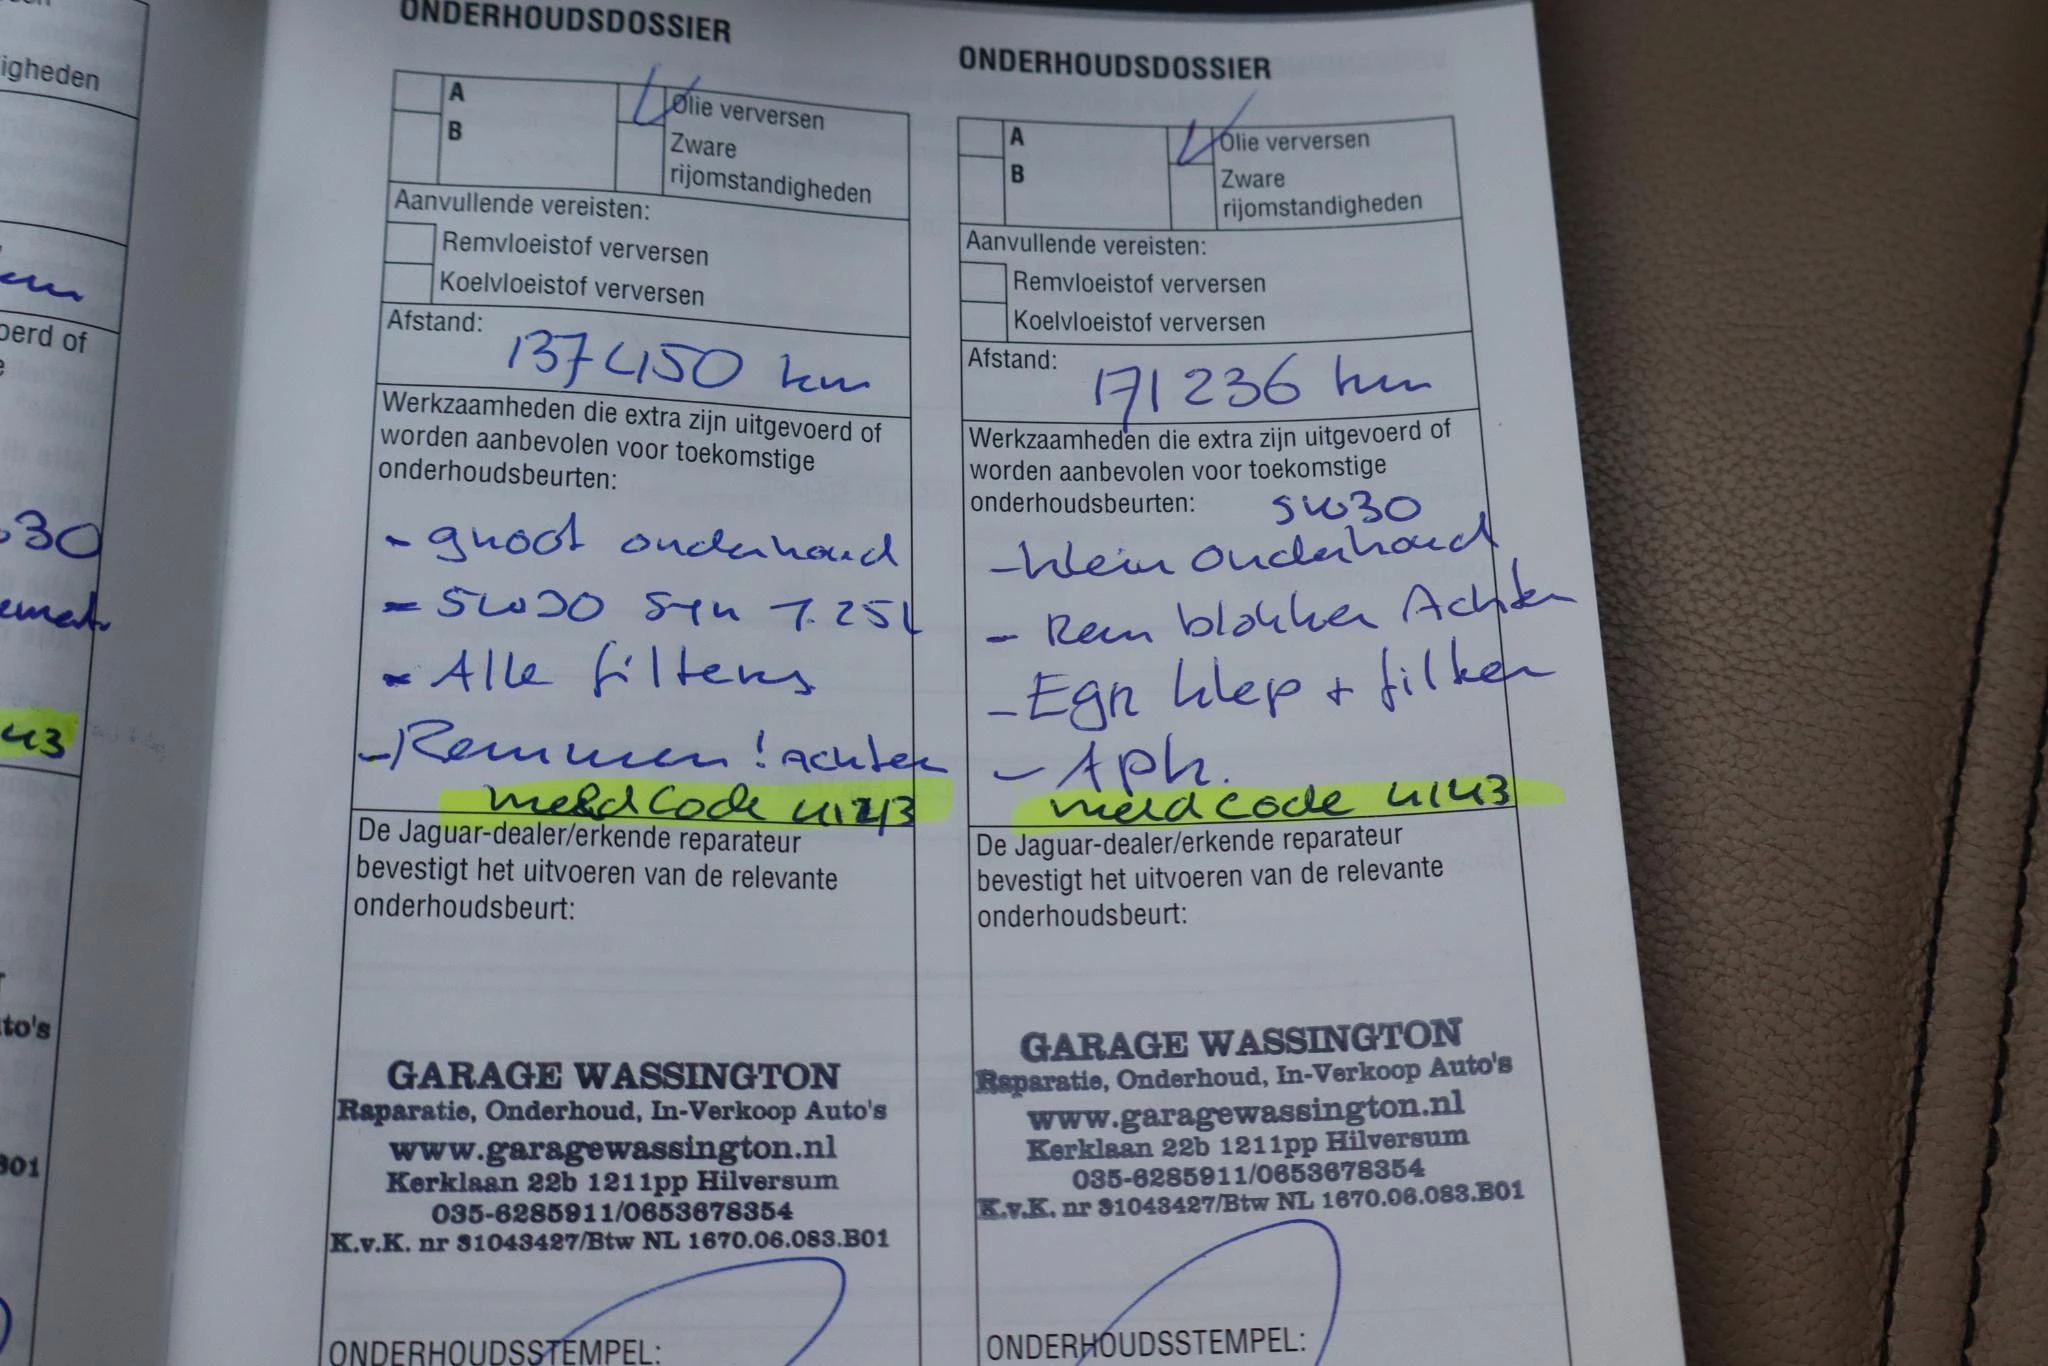 igheden
oerd of
30
43
to's
B01
ONDERHOUDSDOSSIER
A
B
Olie verversen
Zware
rijomstandigheden
Aanvullende vereisten:
Remvloeistof verversen
Koelvloeistof verversen
Afstand: 137450 km
Werkzaamheden die extra zijn uitgevoerd of
worden aanbevolen voor toekomstige
onderhoudsbeurten:
- groot onderhoud
- 5W30 Syn 7.25L
- Alle filters
- Remmen! Achter
meldcode 4143
De Jaguar-dealer/erkende reparateur
bevestigt het uitvoeren van de relevante
onderhoudsbeurt:
GARAGE WASSINGTON
Raparatie, Onderhoud, In-Verkoop Auto's
www.garagewassington.nl
Kerklaan 22b 1211pp Hilversum
035-6285911/0653678354
K.v.K. nr 31043427/Btw NL 1670.06.083.B01
ONDERHOUDSSTEMPEL:
ONDERHOUDSDOSSIER
A
B
Olie verversen
Zware
rijomstandigheden
Aanvullende vereisten:
Remvloeistof verversen
Koelvloeistof verversen
Afstand: 171236 km
Werkzaamheden die extra zijn uitgevoerd of
worden aanbevolen voor toekomstige
onderhoudsbeurten: 5W30
- klein onderhoud
- Rem blokken Achter
- Egr klep + filter
- Apk.
meldcode 4143
De Jaguar-dealer/erkende reparateur
bevestigt het uitvoeren van de relevante
onderhoudsbeurt:
GARAGE WASSINGTON
Raparatie, Onderhoud, In-Verkoop Auto's
www.garagewassington.nl
Kerklaan 22b 1211pp Hilversum
035-6285911/0653678354
K.v.K. nr 31043427/Btw NL 1670.06.083.B01
ONDERHOUDSSTEMPEL: